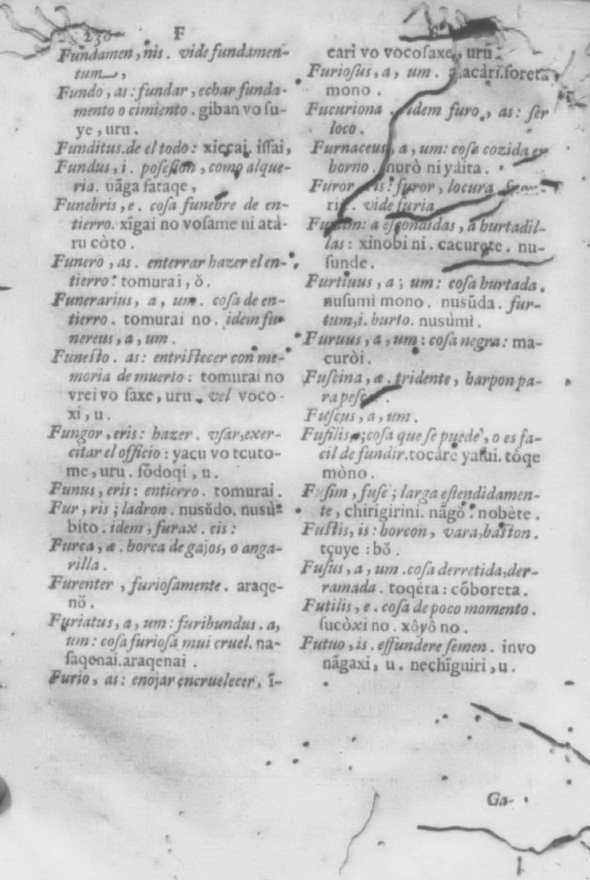 230 F
Fundamen, nis. vide fundamen-
tum.
Fundo, as: fundar, echar funda-
mento o cimiento. giban vo su-
ye, uru.
Funditus. de el todo: xicçai, issai,
Fundus, i. posesion, como alque-
ria. uãga sataqe,
Funebris, e. cosa funebre de en-
tierro. xĩgai no vosame ni atà-
ru còto.
Funero, as. enterrar hazer el en-
tierro: tomurai, ŏ.
Funerarius, a, um. cosa de en-
tierro. tomurai no. idem fu-
nereus, a, um.
Funesto. as: entristecer con me-
moria de muerto: tomurai no
vrei vo saxe, uru. vel voco-
xi, u.
Fungor, eris: hazer. vsar, exer-
citar el officio: yacu vo tcuto-
me, uru. sŏdoqi, u.
Funus, eris: entierro. tomurai.
Fur, ris; ladron. nusũdo. nusũ-
bito. idem, furax. cis:
Furca, æ. horca de gajos, o anga-
rilla.
Furenter, furiosamente. araqe-
nŏ.
Furiatus, a, um: furibundus. a,
um: cosa furiosa mui cruel. na-
saqenai. araqenai.
Furio, as: enojar encruelecer, ĩ-
cari vo vocosaxe, uru.
Furiosus, a, um. acàri. soreta,
mono.
Fucuriona. idem furo, as: ser
loco.
Furnaceus, a, um: cosa cozida en
horno. nurò ni yáita.
Furor, ris: furor, locura
vide furia
a escondidas, à hurtadil-
las: xinobi ni. cacurete. nu-
sunde.
Furtiuus, a; um: cosa hurtada.
nusumi mono. nusũda. fur-
tum, i. hurto. nusùmi.
Furuus, a, um: cosa negra: ma-
curòi.
Fuscina, æ. tridente, harpon pa-
ra
Fuscus, a, um.
Fusilis, cosa que se puede, o es fa-
cil de fundir. tocàre yasui. tóqe
mòno.
Fusim, fuse; larga estendidamen-
te, chirigirini. nãgŏ. nobète.
Fustis, is: horcon, vara, baston.
tçuye: bŏ.
Fusus, a, um. cosa derretida, der-
ramada. toqèta: cŏboreta.
Futilis, e. cosa de poco momento.
sucòxi no. xôyô no.
Futuo, is. effundere semen. invo
nãgaxi, u. nechĩguiri, u.
Ga-